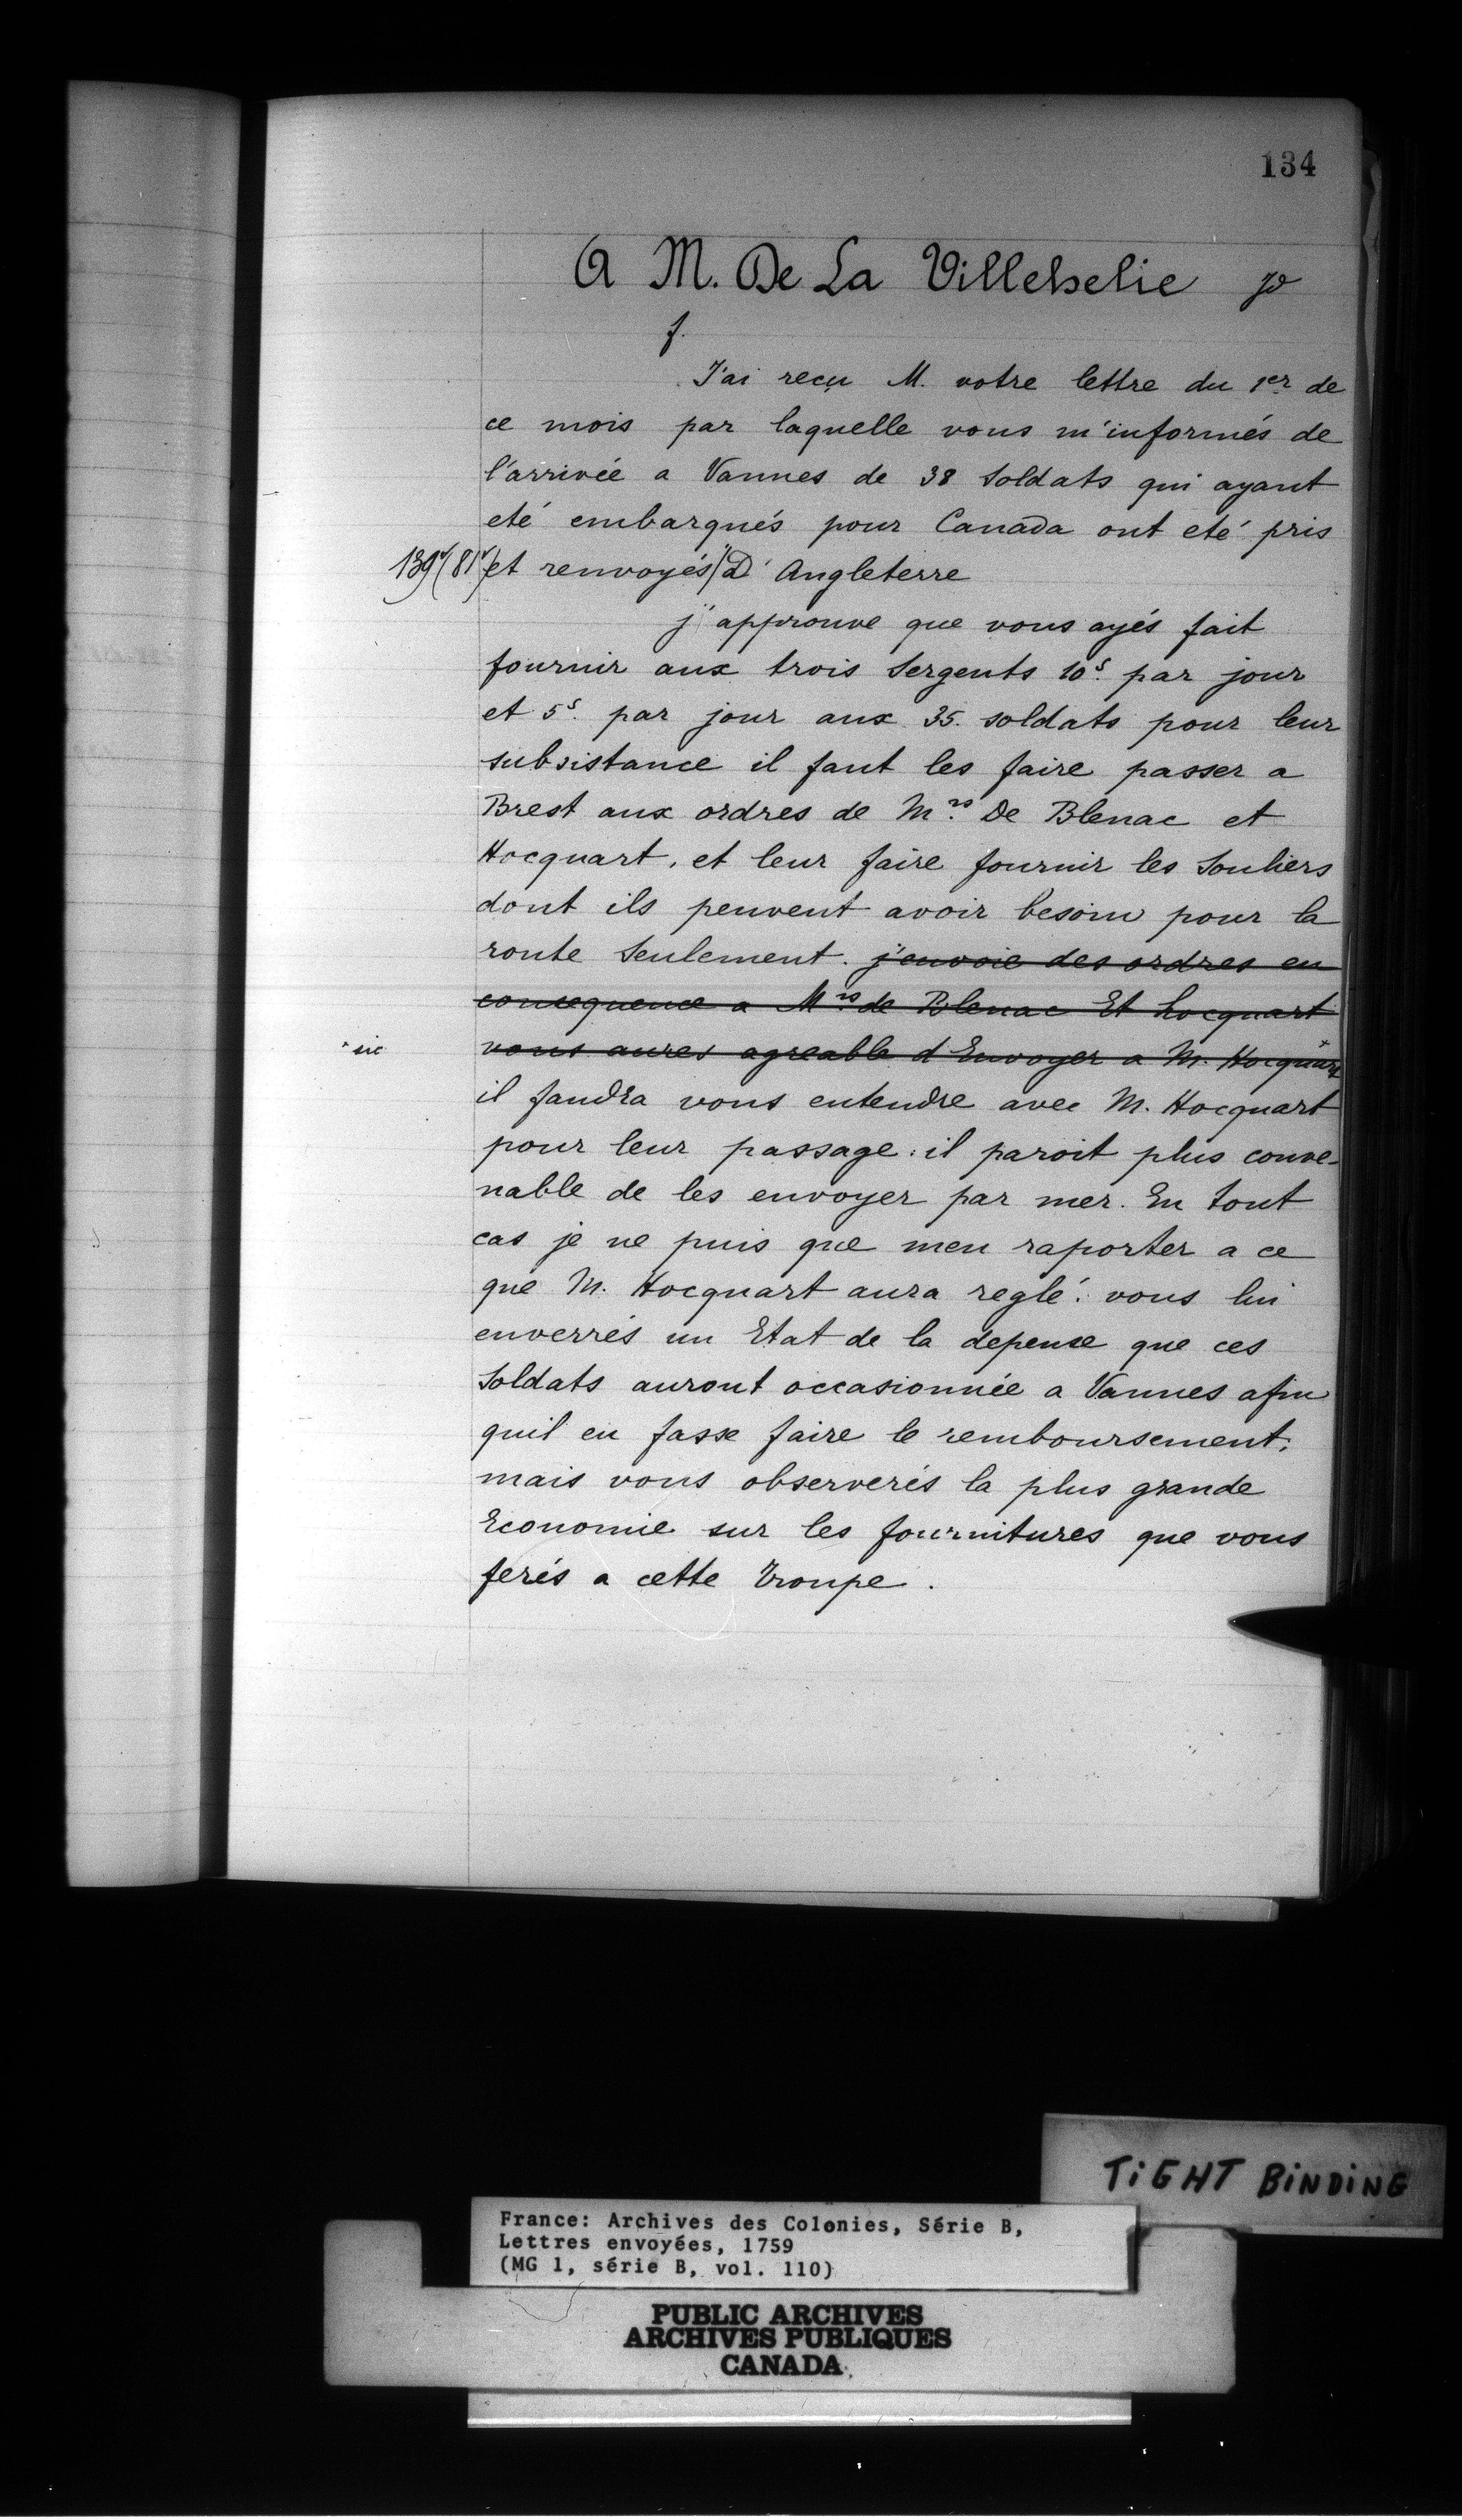 134
A M. De La Villehelie
f.
J'ai reçu M. votre lettre du 1er de
ce mois par laquelle vous m'informés de
l'arrivée a Vannes de 38 soldats qui ayant
eté embarqués pour Canada ont eté pris
139v (81v) et renvoyés / D' Angleterre
j'approuve que vous ayés fait
fournir aux trois sergents 10s. par jour
et 5s. par jour aux 35. soldats pour leur
subsistance il faut les faire passer a
Brest aux ordres de Mrs. De Blenac et
Hocquart, et leur faire fournir les souliers
dont ils peuvent avoir besoin pour la
route seulement. j'envoie des ordres en
consequence a Mrs de Blenac Et hocquart
* sic
vous aures agreable d'Envoyer a M. Hocquart*
il faudra vous entendre avec M. Hocquart
pour leur passage: il paroit plus conve-
nable de les envoyer par mer. En tout
cas je ne puis que men raporter a ce
que M. Hocquart aura reglé: vous lui
enverrés un Etat de la depense que ces
soldats auront occasionnée a Vannes afin
quil en fasse faire le remboursement;
mais vous observerés la plus grande
Economie sur les fournitures que vous
ferés a cette Troupe.
TIGHT BINDING
France: Archives des Colonies, Série B,
Lettres envoyées, 1759
(MG 1, série B, vol. 110)
PUBLIC ARCHIVES
ARCHIVES PUBLIQUES
CANADA